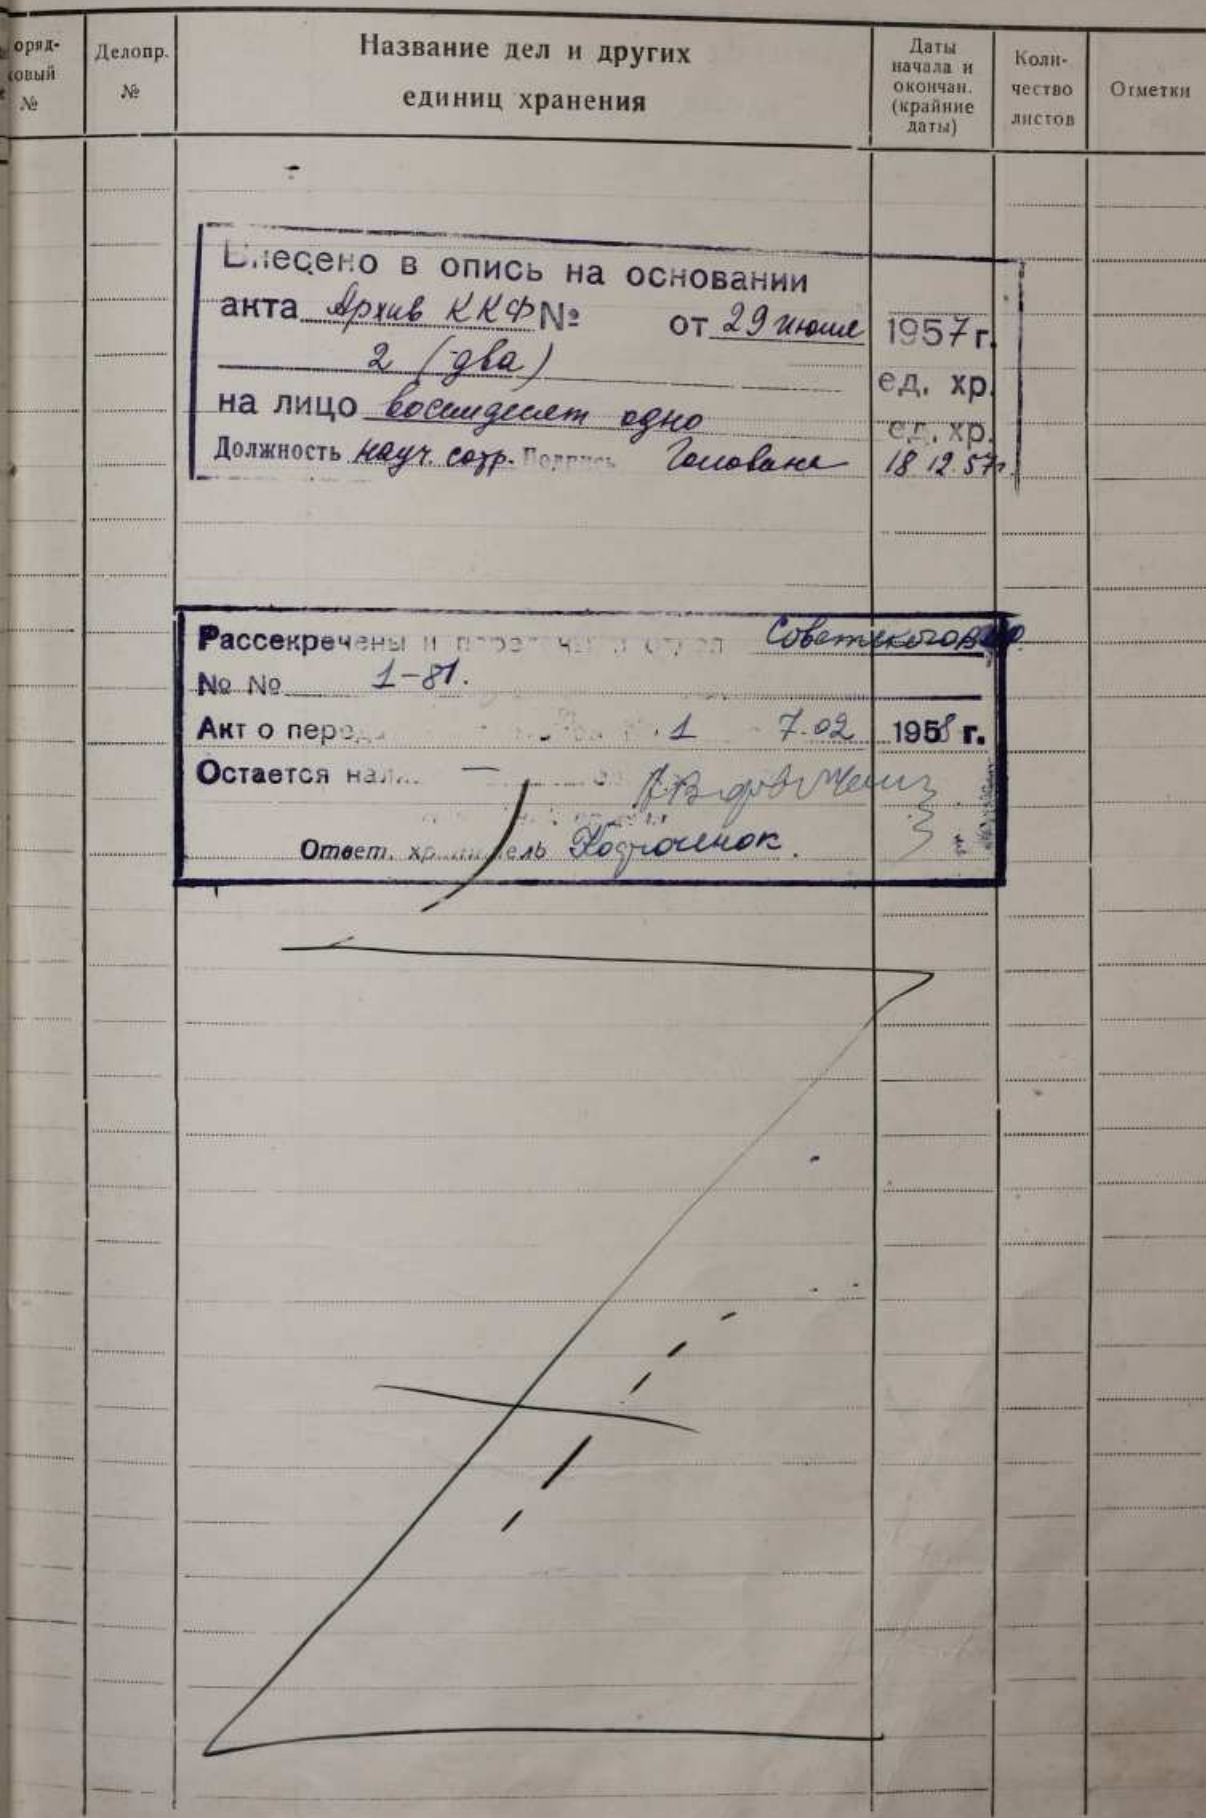 оряд-
ковый
№
Делопр.
№
Название дел и других
единиц хранения
Даты
начала и
окончан.
(крайние
даты)
Коли-
чество
листов
Отметки
Внесено в опись на основании
акта Архив ККФ № от 29 июля 1957 г.
2 (два) ед. хр.
на лицо восемдесят одно ед. хр.
Должность науч. сотр. Подпись Голована 18.12.57г.
Рассекречены и Советского
№ № 1-81.
Акт о 1 7.02 1958 г.
Остается —
Ответ. хранитель